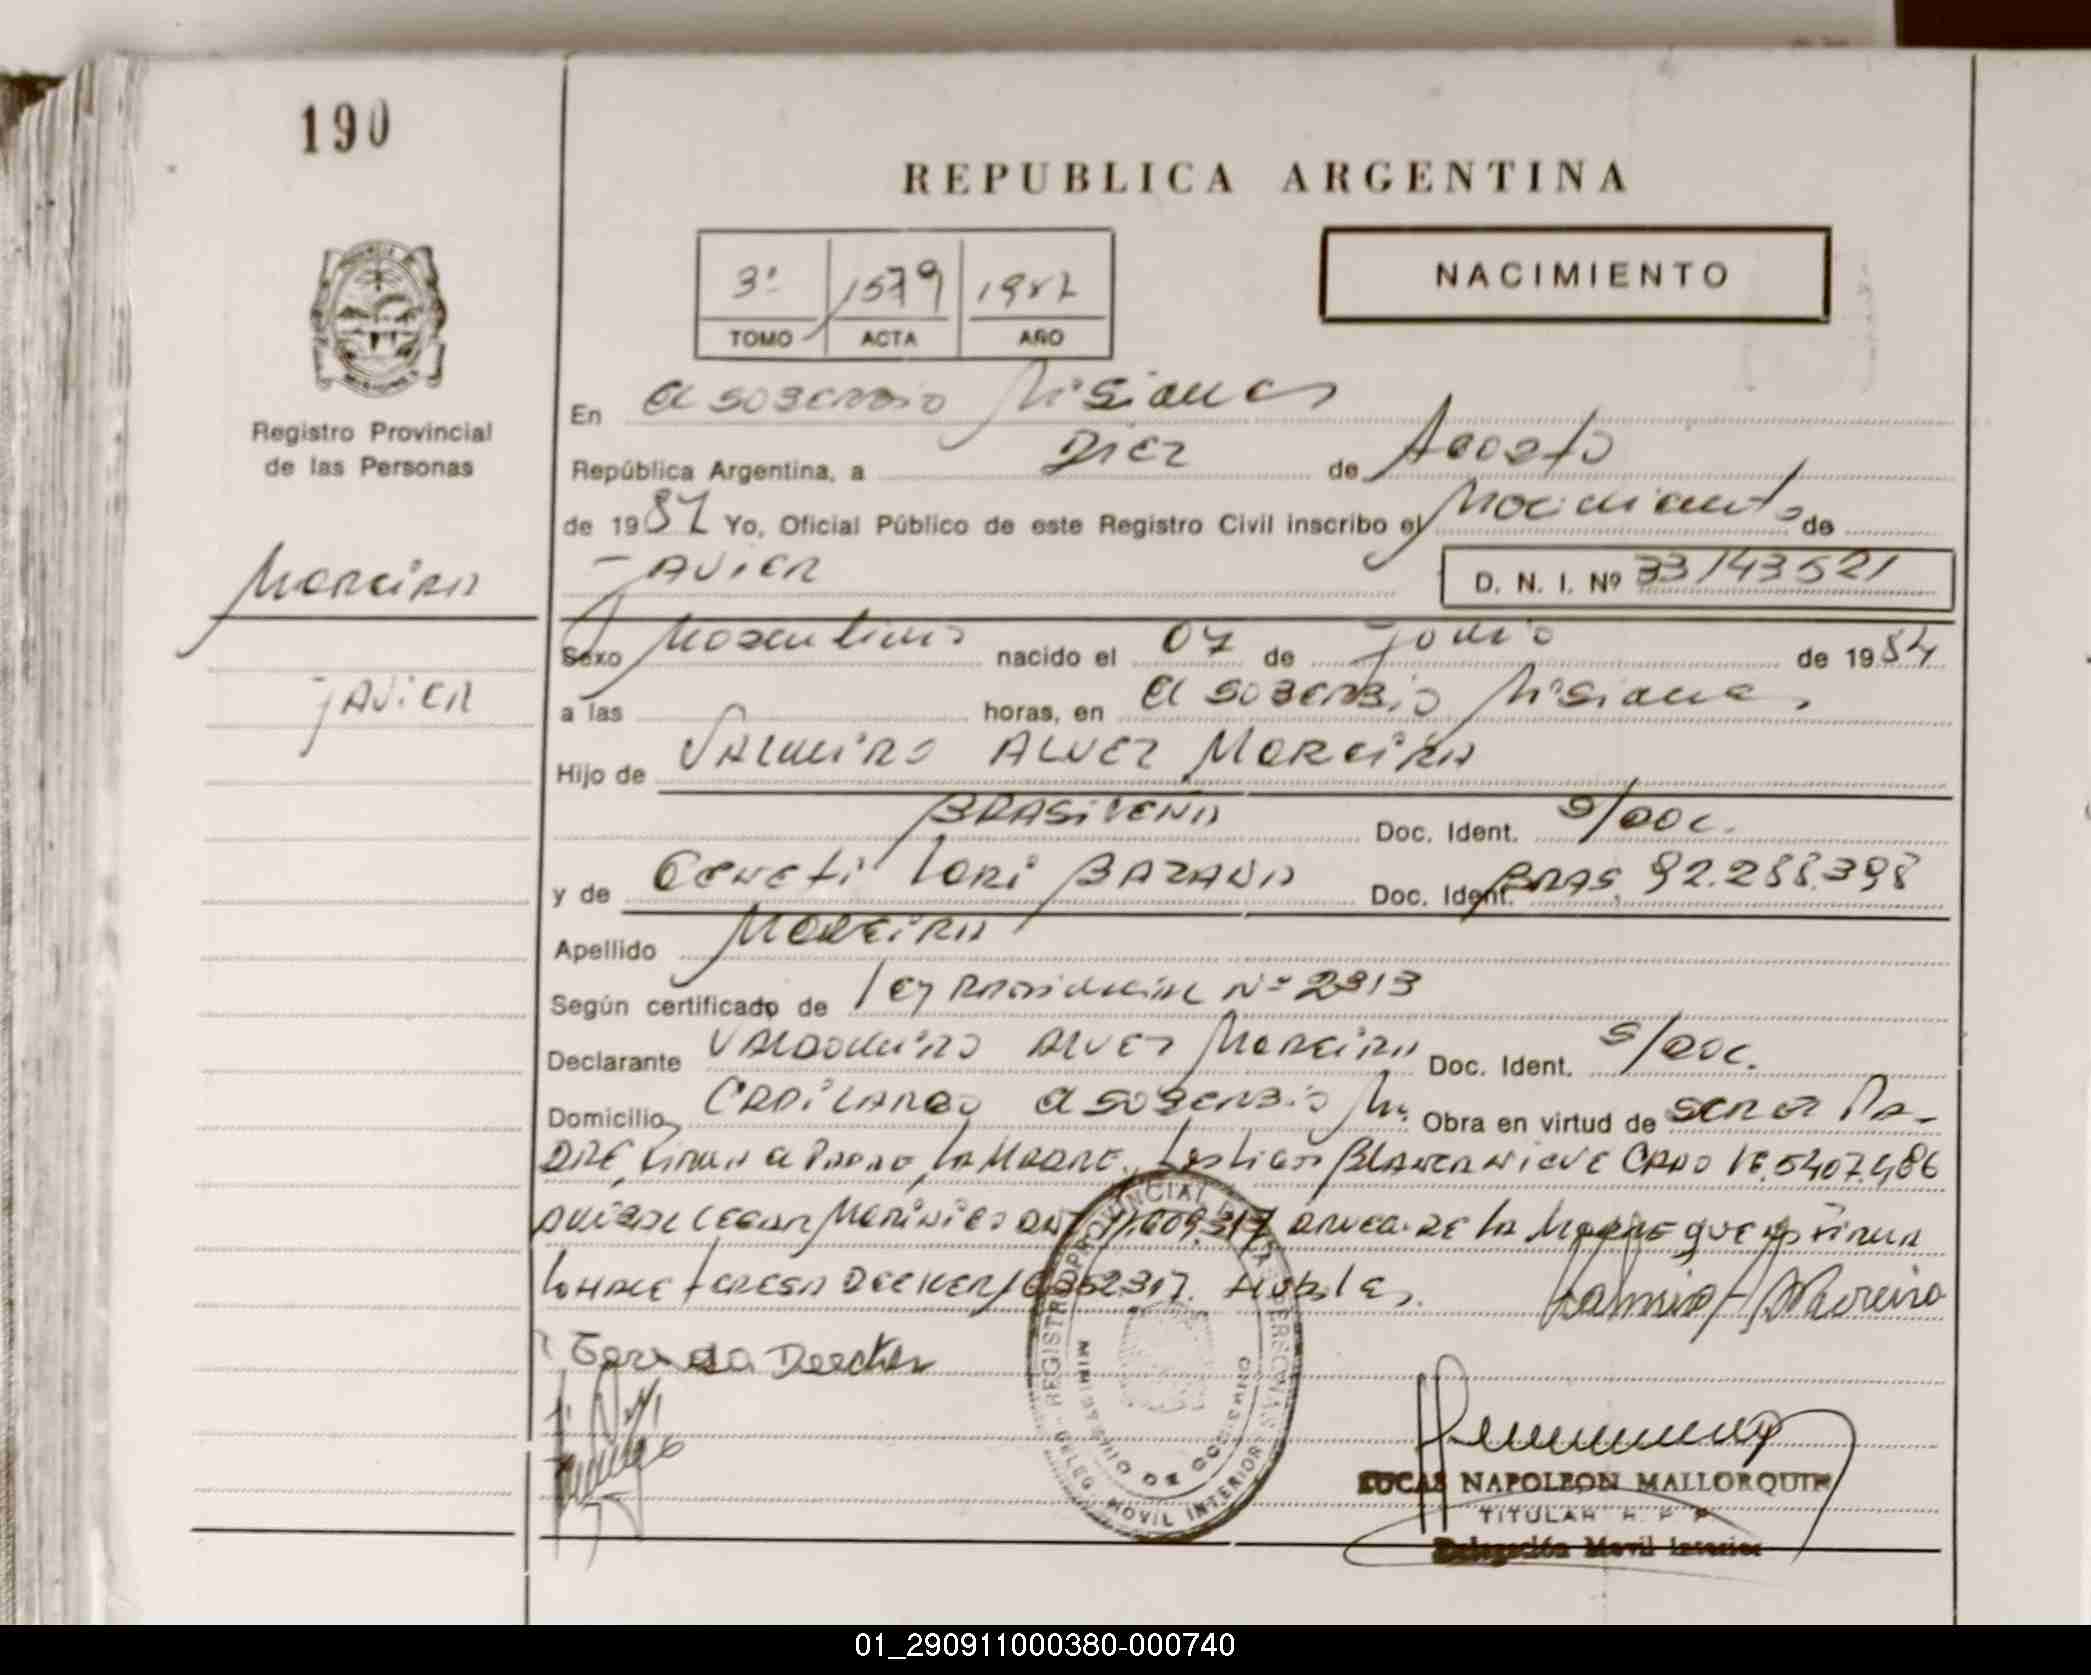 190
REPUBLICA ARGENTINA
3º 1579 1987
TOMO ACTA AÑO
NACIMIENTO
Registro Provincial
de las Personas
Moreira
Javier
En El Soberbio Misiones
República Argentina, a Diez de Agosto
de 1987 Yo, Oficial Público de este Registro Civil inscribo el Nacimiento de
Javier D. N. I. Nº 33143521
Sexo Masculino nacido el 07 de Junio de 1984
a las horas, en El Soberbio Misiones
Hijo de Valmiro Alvez Moreira
Brasileña Doc. Ident. S/Doc.
y de Lori Bazana Doc. Ident. Bras. 92.288.398
Apellido Moreira
Según certificado de Ley Provincial Nº 2313
Declarante Valdomiro Alvez Moreira Doc. Ident. S/Doc.
Domicilio El Soberbio Mi. Obra en virtud de ser el Pa-
dre, firma el Padre, la Madre, Testigos Blanca Nieve 5.407.486
Cesar La Madre que no firma
lo hace Teresa Decker 6352317.
REGISTRO PROVINCIAL DE LAS PERSONAS
MINISTERIO DE GOBIERNO
DELEG. MOVIL INTERIOR
LUCAS NAPOLEON MALLORQUIN
TITULAR R. P. P.
Delegación Movil Interior
01_290911000380-000740